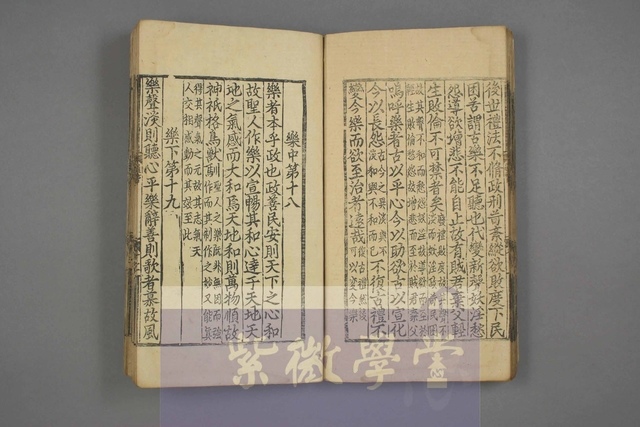 後世禮法不脩政刑苛紊縱欲敗度下民
困苦謂古樂不足聽也代變新聲妖淫愁
怨導欲增悲不能自止故有賊君棄父輕
生敗倫不可禁者矣
嗚呼樂者古以平心今以助欲古以宣化
今以長怨不復古禮不
變今樂而欲至治者遠哉
樂中第十八
樂者本乎政也政善民安則天下之心和
故聖人作樂以宣暢其和心達于天地天
地之氣感而大和焉天地和則萬物順故
神祇格鳥獸馴
樂下第十九
樂聲淡則聽心平樂辭善則歌者慕故風
紫微學堂